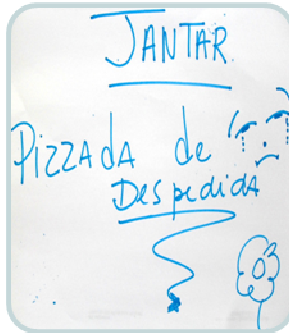 JANTAR
Pizzada de
Despedida